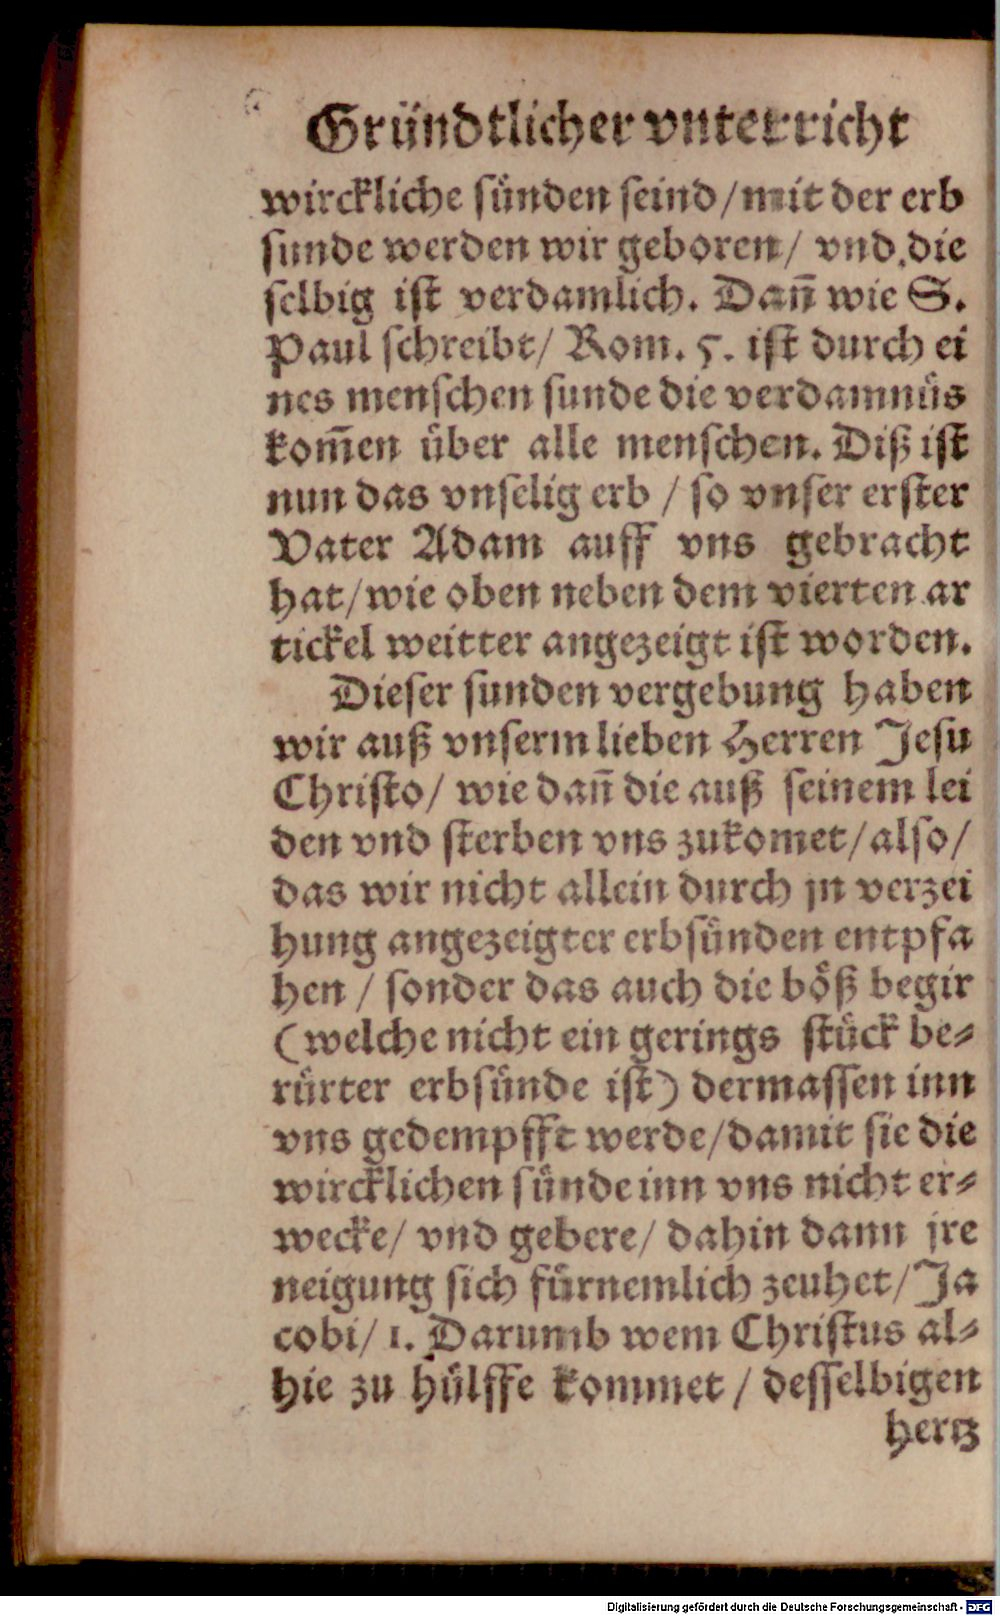 Gründtlicher vnterricht
wirckliche sünden seind/mit der erb
sunde werden wir geboren/ vnd die
selbig ist verdamlich. Dañ wie S.
Paul schreibt/ Rom. 5. ist durch ei
nes menschen sunde die verdamnüs
kom̃en über alle menschen. Diß ist
nun das vnselig erb / so vnser erster
Vater Adam auff vns gebracht
hat/wie oben neben dem vierten ar
tickel weitter angezeigt ist worden.
Dieser sunden vergebung haben
wir auß vnserm lieben Herren Jesu
Christo/ wie dañ die auß seinem lei
den vnd sterben vns zukomet/also/
das wir nicht allein durch jn verzei
hung angezeigter erbsünden entpfa
hen / sonder das auch die böß begir
(welche nicht ein gerings stück be-
rürter erbsünde ist) dermassen inn
vns gedempfft werde/damit sie die
wircklichen sünde inn vns nicht er-
wecke/ vnd gebere/ dahin dann jre
neigung sich fürnemlich zeuhet/ Ja
cobi/ 1. Darumb wem Christus al-
hie zu hülffe kommet / desselbigen
hertz
Digitalisierung gefördert durch die Deutsche Forschungsgemeinschaft - DFG